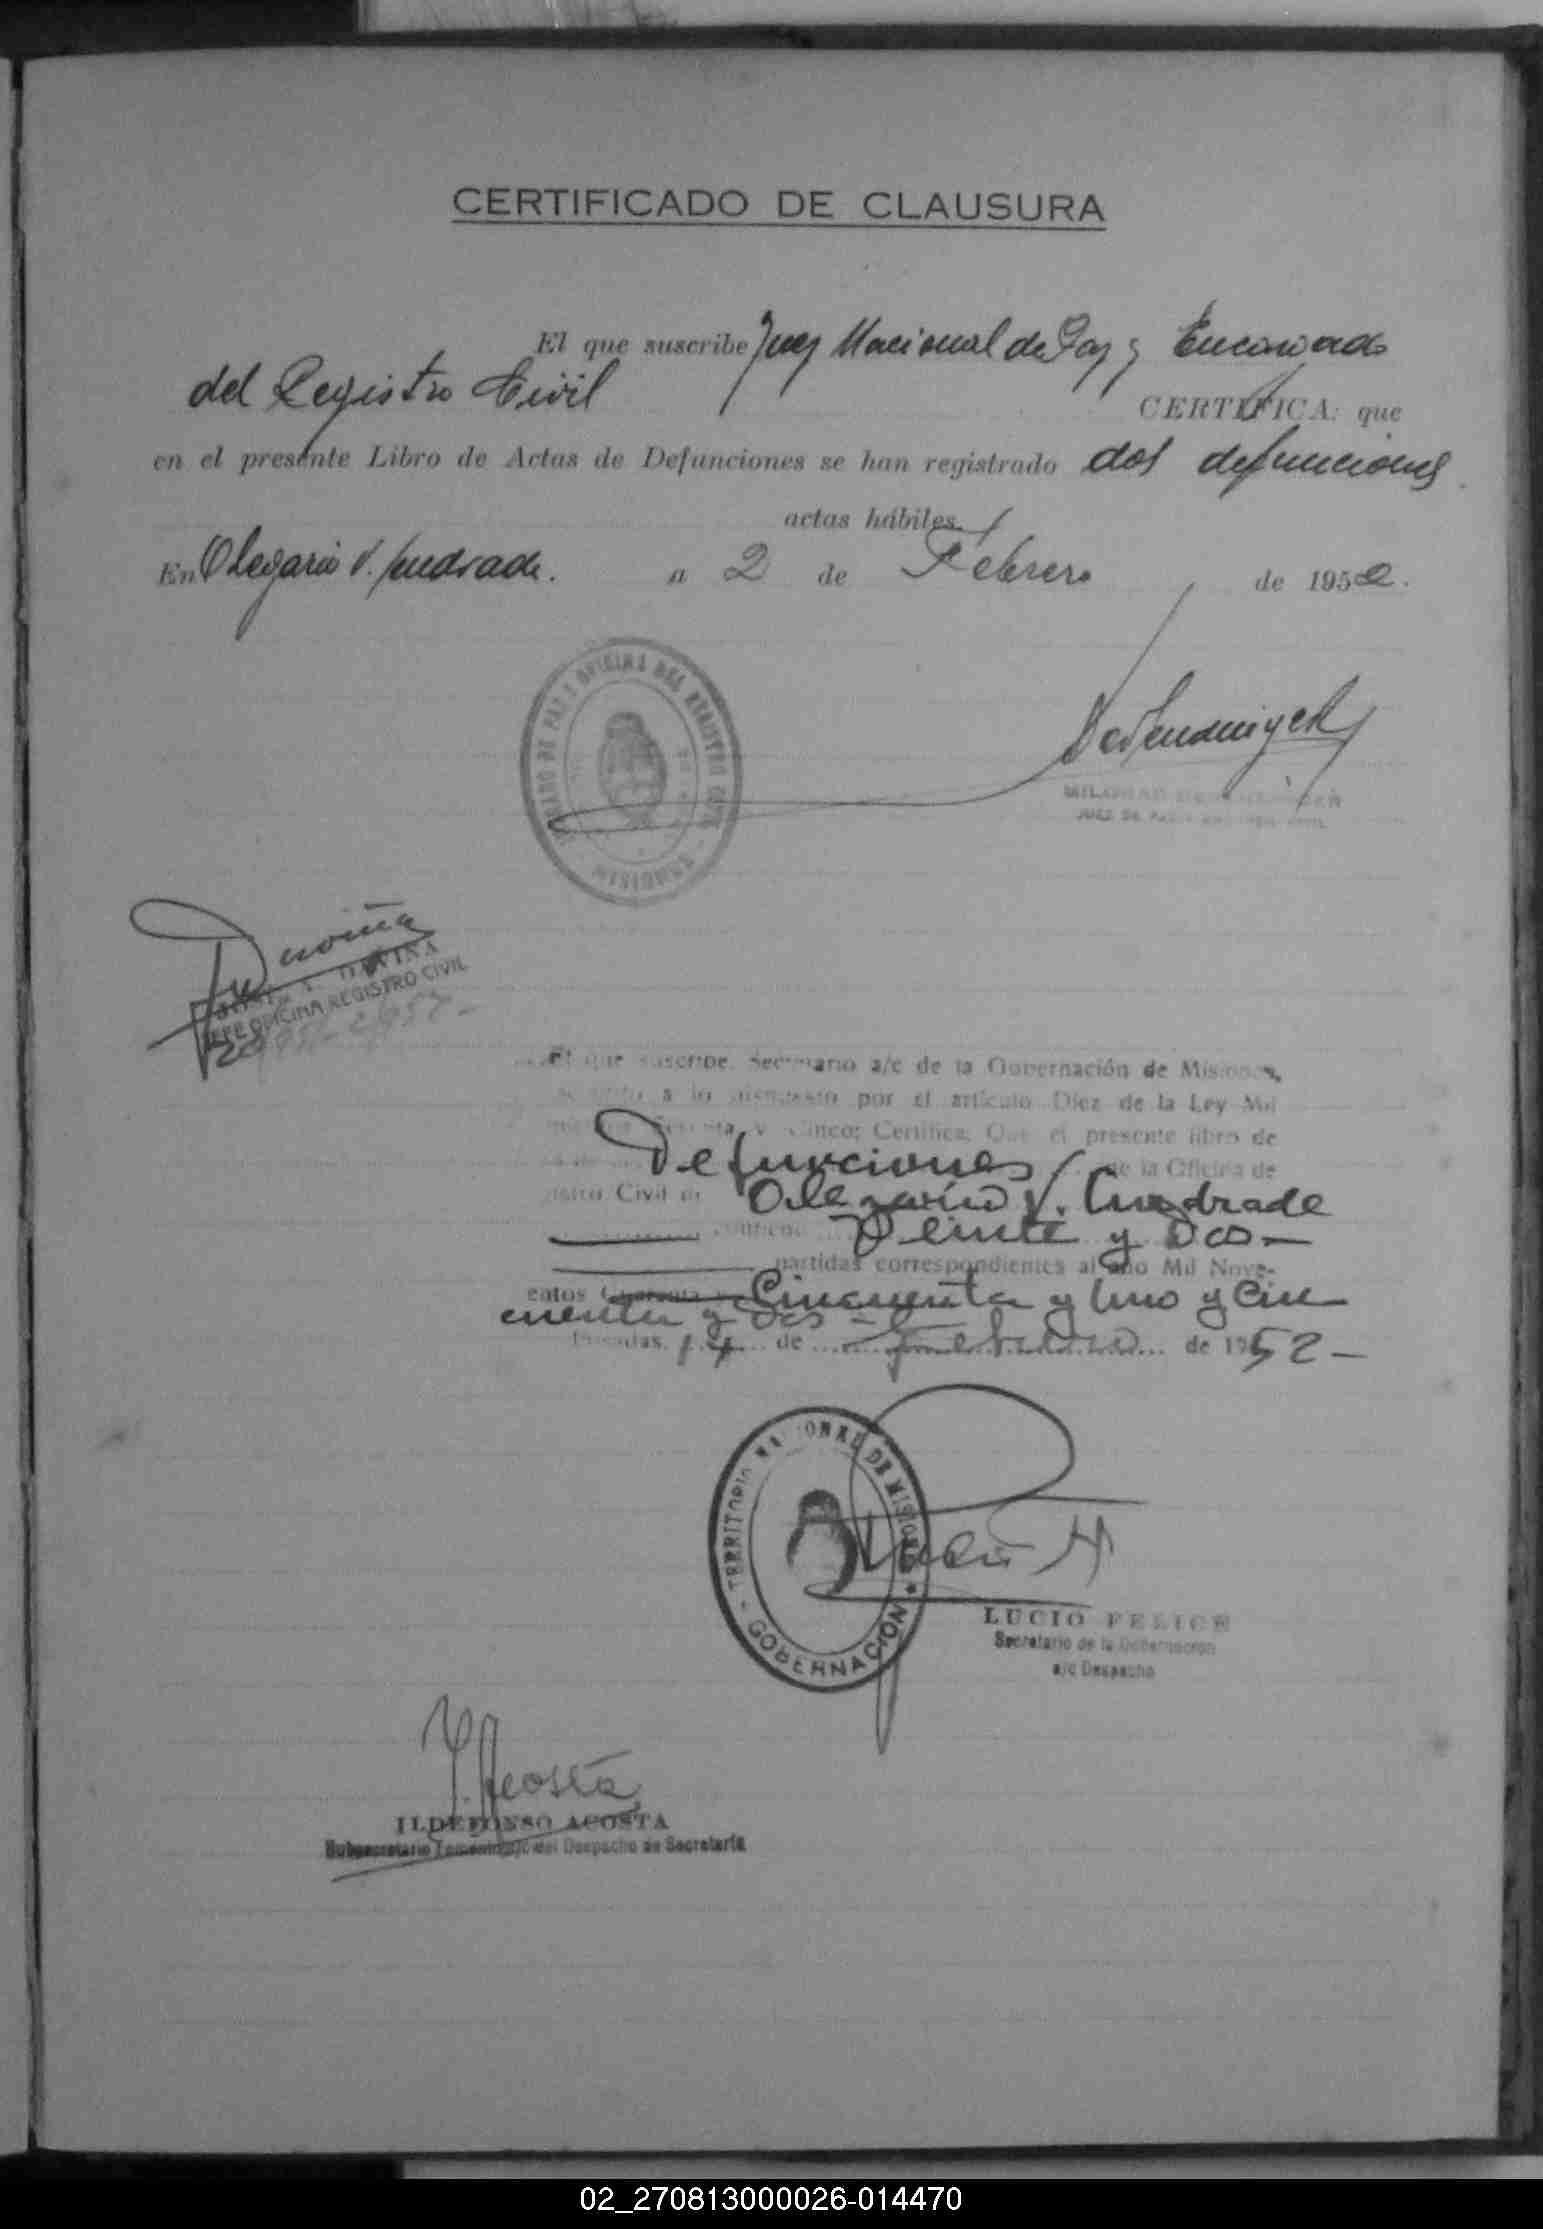 CERTIFICADO DE CLAUSURA
El que suscribe Juez Nacional de Paz y Encargado
del Registro Civil
CERTIFICA: que
en el presente Libro de Actas de Defunciones se han registrado dos defunciones
actas hábiles.
En Olegario V. Andrade. a 2 de Febrero de 1952.
OFICINA DEL REGISTRO
MISIONES
JEFE OFICINA REGISTRO CIVIL
El que suscribe, Secretario a/c de la Gobernación de Misiones,
a lo dispuesto por el artículo Diez de la Ley Mil
y Cinco; Certifica: Que el presente libro de
Defunciones de la Oficina de
Civil de Olegario V. Andrade
contiene Veinte y Dos
partidas correspondientes al año Mil Nove-
cientos Cuarenta y Cincuenta y Uno y Cin
cuenta y Dos
Posadas, 14 de de 1952
TERRITORIO NACIONAL DE MISIONES
GOBERNACION
LUCIO FELICE
Secretario de la Gobernación
a/c Despacho
I. Acosta
ILDEFONSO ACOSTA
Subsecretario a/c del Despacho de Secretaría
02_270813000026-014470